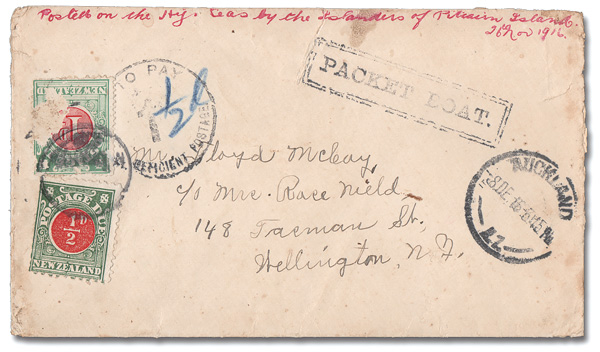 Posted on the Hy. Seas by the Islanders of Pitcairn Island.
26 Nov 1916.
PACKET BOAT.
TO PAY
½d
DEFICIENT POSTAGE
NEW ZEALAND
1D
POSTAGE DUE
½D
NEW ZEALAND
Mr. Floyd McCoy,
c/o Mrs. Race Nield
148 Tasman St.,
Wellington, N.Z.
AUCKLAND
N.Z.